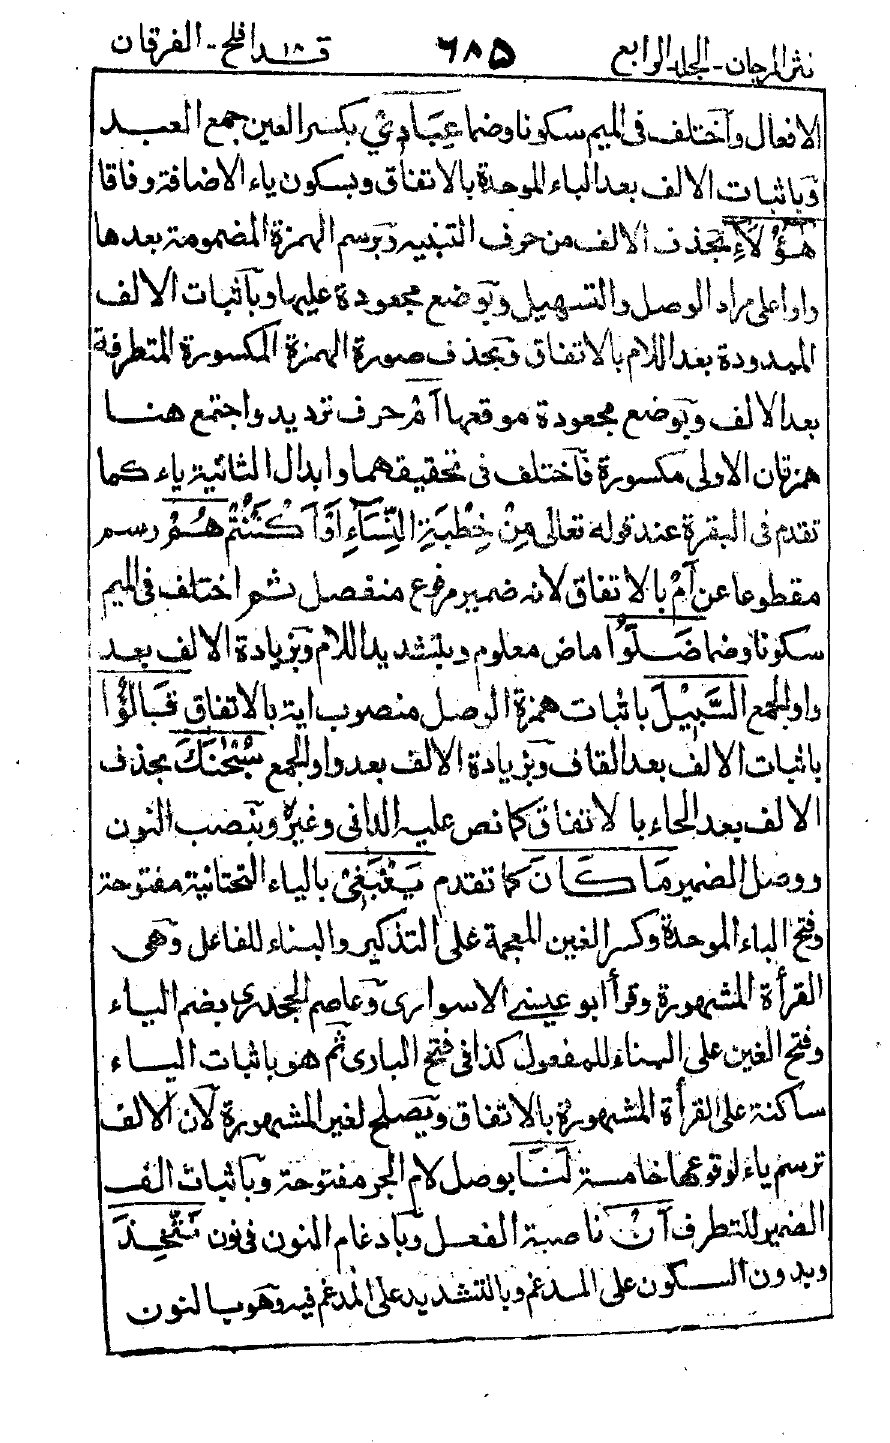 نثر المرجان - الجلد الرابع ٦٨٥ قد افلح ١٨ - الفرقان
الافعال واختلف فى الميم سكونا وضما عِبَادِيْ بكسر العين جمع العبد
وباثبات الالف بعد الباء الموحدة بالاتفاق وبسكون ياء الاضافة وفاقا
هٰٓؤُلَآءِ بحذف الالف من حرف التنبيه وبرسم الهمزة المضمومة بعدها
واوا على مراد الوصل والتسهيل وبوضع مجعودة عليها وباثبات الالف
الممدودة بعد اللام بالاتفاق وبحذف صورة الهمزة المكسورة المتطرفة
بعد الالف وبوضع مجعودة موقعها اَمْ حرف ترديد واجتمع هنا
همزتان الاولى مكسورة فاختلف فى تحقيقهما وابدال الثانية ياء كما
تقدم فى البقرة عند قوله تعالى مِنْ خِطْبَةِ النِّسَآءِ اَوْ اَكْنَنْتُمْ هُمْ رسم
مقطوعا عن اَمْ بالاتفاق لانه ضمير مرفوع منفصل ثم اختلف فى الميم
سكونا وضما ضَلُّوا ماض معلوم وبتشديد اللام وبزيادة الالف بعد
واو الجمع السَّبِيْلَ باثبات همزة الوصل منصوب اية بالاتفاق قَالُوْا
باثبات الالف بعد القاف وبزيادة الالف بعد واو الجمع سُبْحٰنَكَ بحذف
الالف بعد الحاء بالاتفاق كما نص عليه الدانى وغيره وبنصب النون
ووصل الضمير مَا كَانَ كما تقدم يَنْبَغِيْ بالياء التحتانية مفتوحة
وفتح الباء الموحدة وكسر الغين المعجمة على التذكير والبناء للفاعل وهى
القرأة المشهورة وقرأ ابو عيسى الاسوارى وعاصم الجحدرى بضم الياء
وفتح الغين على البناء للمفعول كذا فى فتح البارى ثم هو باثبات الياء
ساكنة على القرأة المشهورة بالاتفاق ويصلح لغير المشهورة لان الالف
ترسم ياء لوقوعها خامسة لَنَا بوصل لام الجر مفتوحة وباثبات الف
الضمير للتطرف اَنْ ناصبة الفعل وبادغام النون فى نون نَتَّخِذَ
وبدون السكون على المدغم وبالتشديد على المدغم فيه وهو بالنون